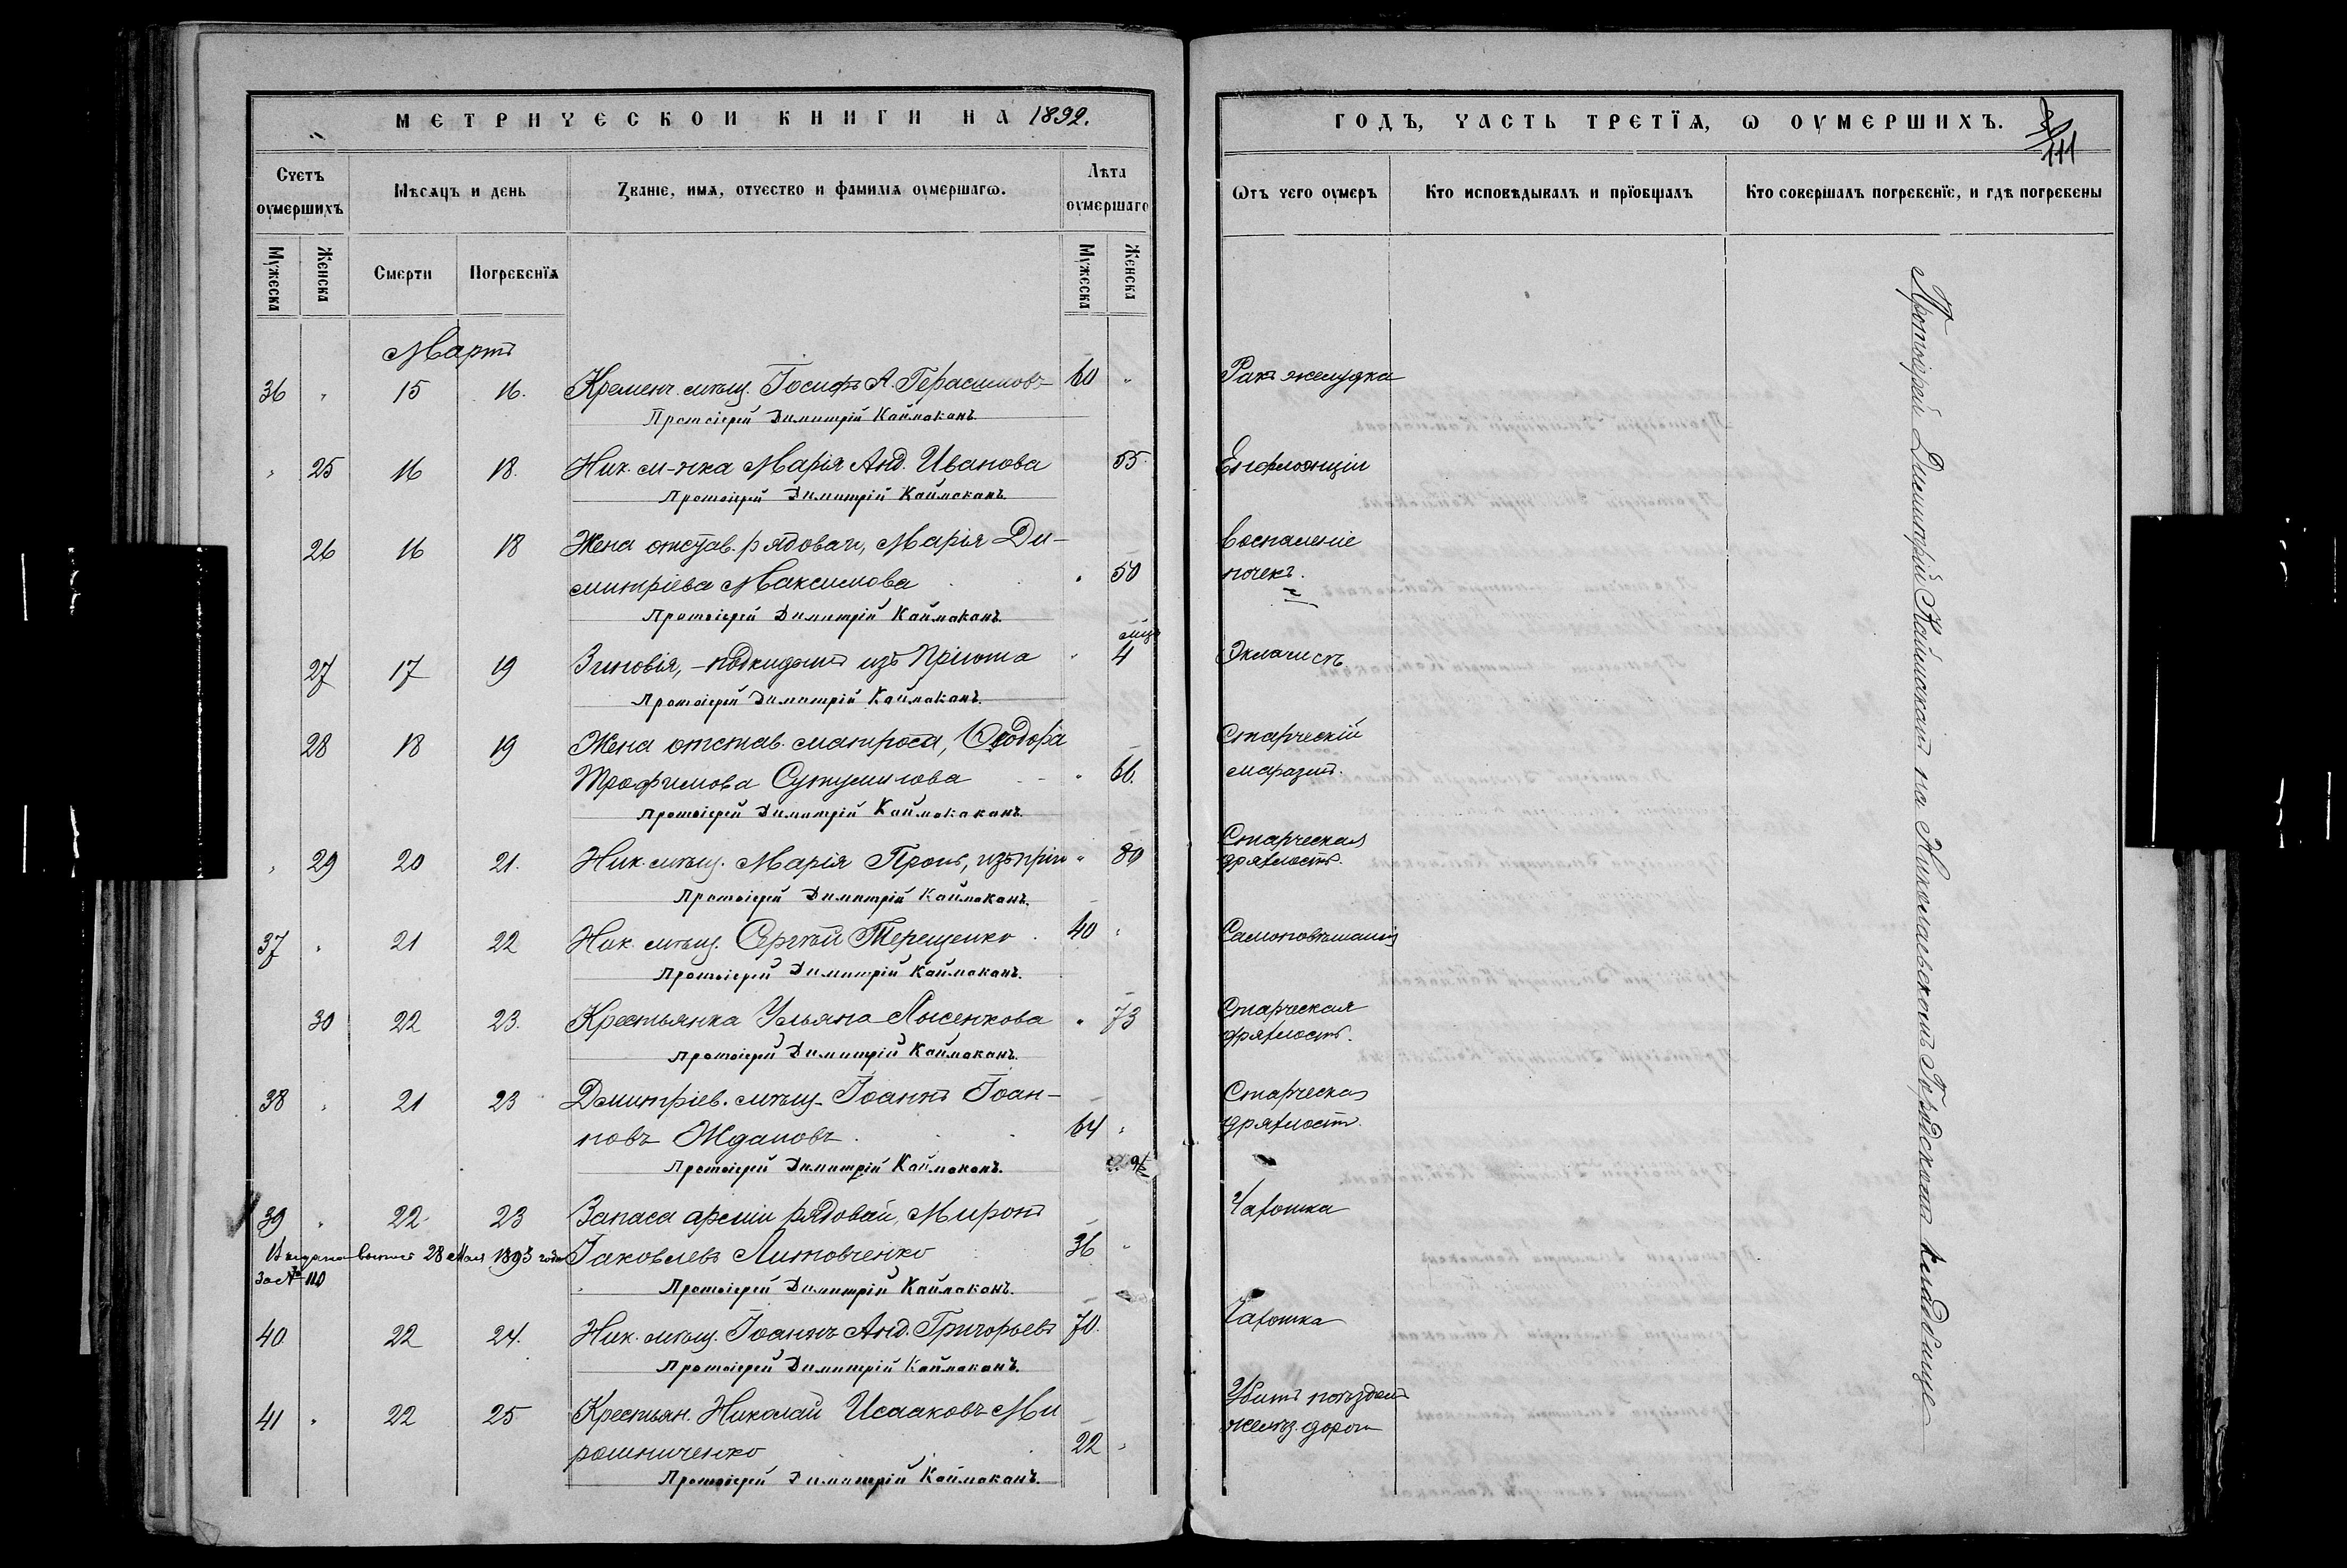 МЕТРИЧЕСКОИ КНИГИ НА 1892.
Счетъ оумершихъ
Мѣсяцъ и день
Званіе, имѧ, отчество и фамиліѧ оумершагѡ.
Лѣта оумершаго
Мужеска
Женска
Смерти
Погребенїѧ
Мужеска
Женска
Мартъ
36 " 15 16. Кременч. мѣщ. Іосифъ А. Герасимовъ 60 "
Протоіерей Димитрій Каймаканъ.
" 25 16 18. Ник. м-нка Марія Анд. Иванова 55.
Протоіерей Димитрій Каймаканъ.
26 16 18 Жена отстав. рядовач, Марія Ди-
митріева Максимова " 50
Протоіерей Димитрій Каймаканъ.
мц.
27 17 19 Зиновія, - подкидышъ изъ Пріюта " 4
Протоіерей Димитрій Каймаканъ.
28 18 19 Жена отстав. матроса, Ѳеодора
Трофимова " 66.
Протоіерей Димитрій Каймаканъ.
" 29 20 21. Ник. мѣщ. Марія изъ прію " 80
Протоіерей Димитрій Каймаканъ.
37 " 21 22 Ник. мѣщ. Сергѣй Терещенко 40 "
Протоіерей Димитрій Каймаканъ.
30 22 23. Крестьянка Ульяна Лысенкова " 73
Протоіерей Димитрій Каймаканъ.
38 " 21 23 Дмитріев. мѣщ. Іоаннъ Іоан-
новъ Ждановъ 64 "
Протоіерей Димитрій Каймаканъ.
39 " 22 23 Запаса арміи рядовой, Миронъ
Выдана выпись 28 Мая 1893 года Іаковлевъ Литовченко 36 "
За № 110
Протоіерей Димитрій Каймаканъ.
40 22 24. Ник. мѣщ. Іоаннъ Анд. Григорьевъ 70.
Протоіерей Димитрій Каймаканъ.
41 " 22 25 Крестьян. Николай Исааковъ Ми
рошниченко 22 "
Протоіерей Димитрій Каймаканъ.
ГОДЪ, ЧАСТЬ ТРЕТЇѦ, Ѡ ОУМЕРШИХЪ.
111
Ѿтъ чего оумеръ
Кто исповѣдывалъ и прїобщалъ
Кто совершалъ погребенїе, и гдѣ погребены
Ракъ желудка
Воспаленіе
почекъ.
Старческій
маразмъ.
Старческая
дряхлость.
Самоповѣшаніе
Старческая
дряхлость.
Старческая
дряхлость.
Чахотка
Чахотка
Убитъ поѣздомъ
желѣз. дороги
Протоіерей Димитрій Каймаканъ на Николаевскомъ Городскомъ кладбище